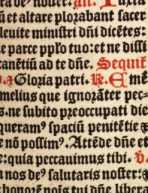 et altare plorabant sacer
leuite ministri dñi dicẽtes:
parce pp̃lo tuo: et ne dissi
cantiũ ad te dñe. Sequit̃
Gloria patri. ℟. E me
melius que ignorãter pec-
ne subito preoccupati die
queram⁹ spaciũ penitẽtie
nõ possim⁹. Attẽde dñe
quia peccauimus tibi.
nos de⁹ salutaris noster:
honorẽ nois tui dñe liber